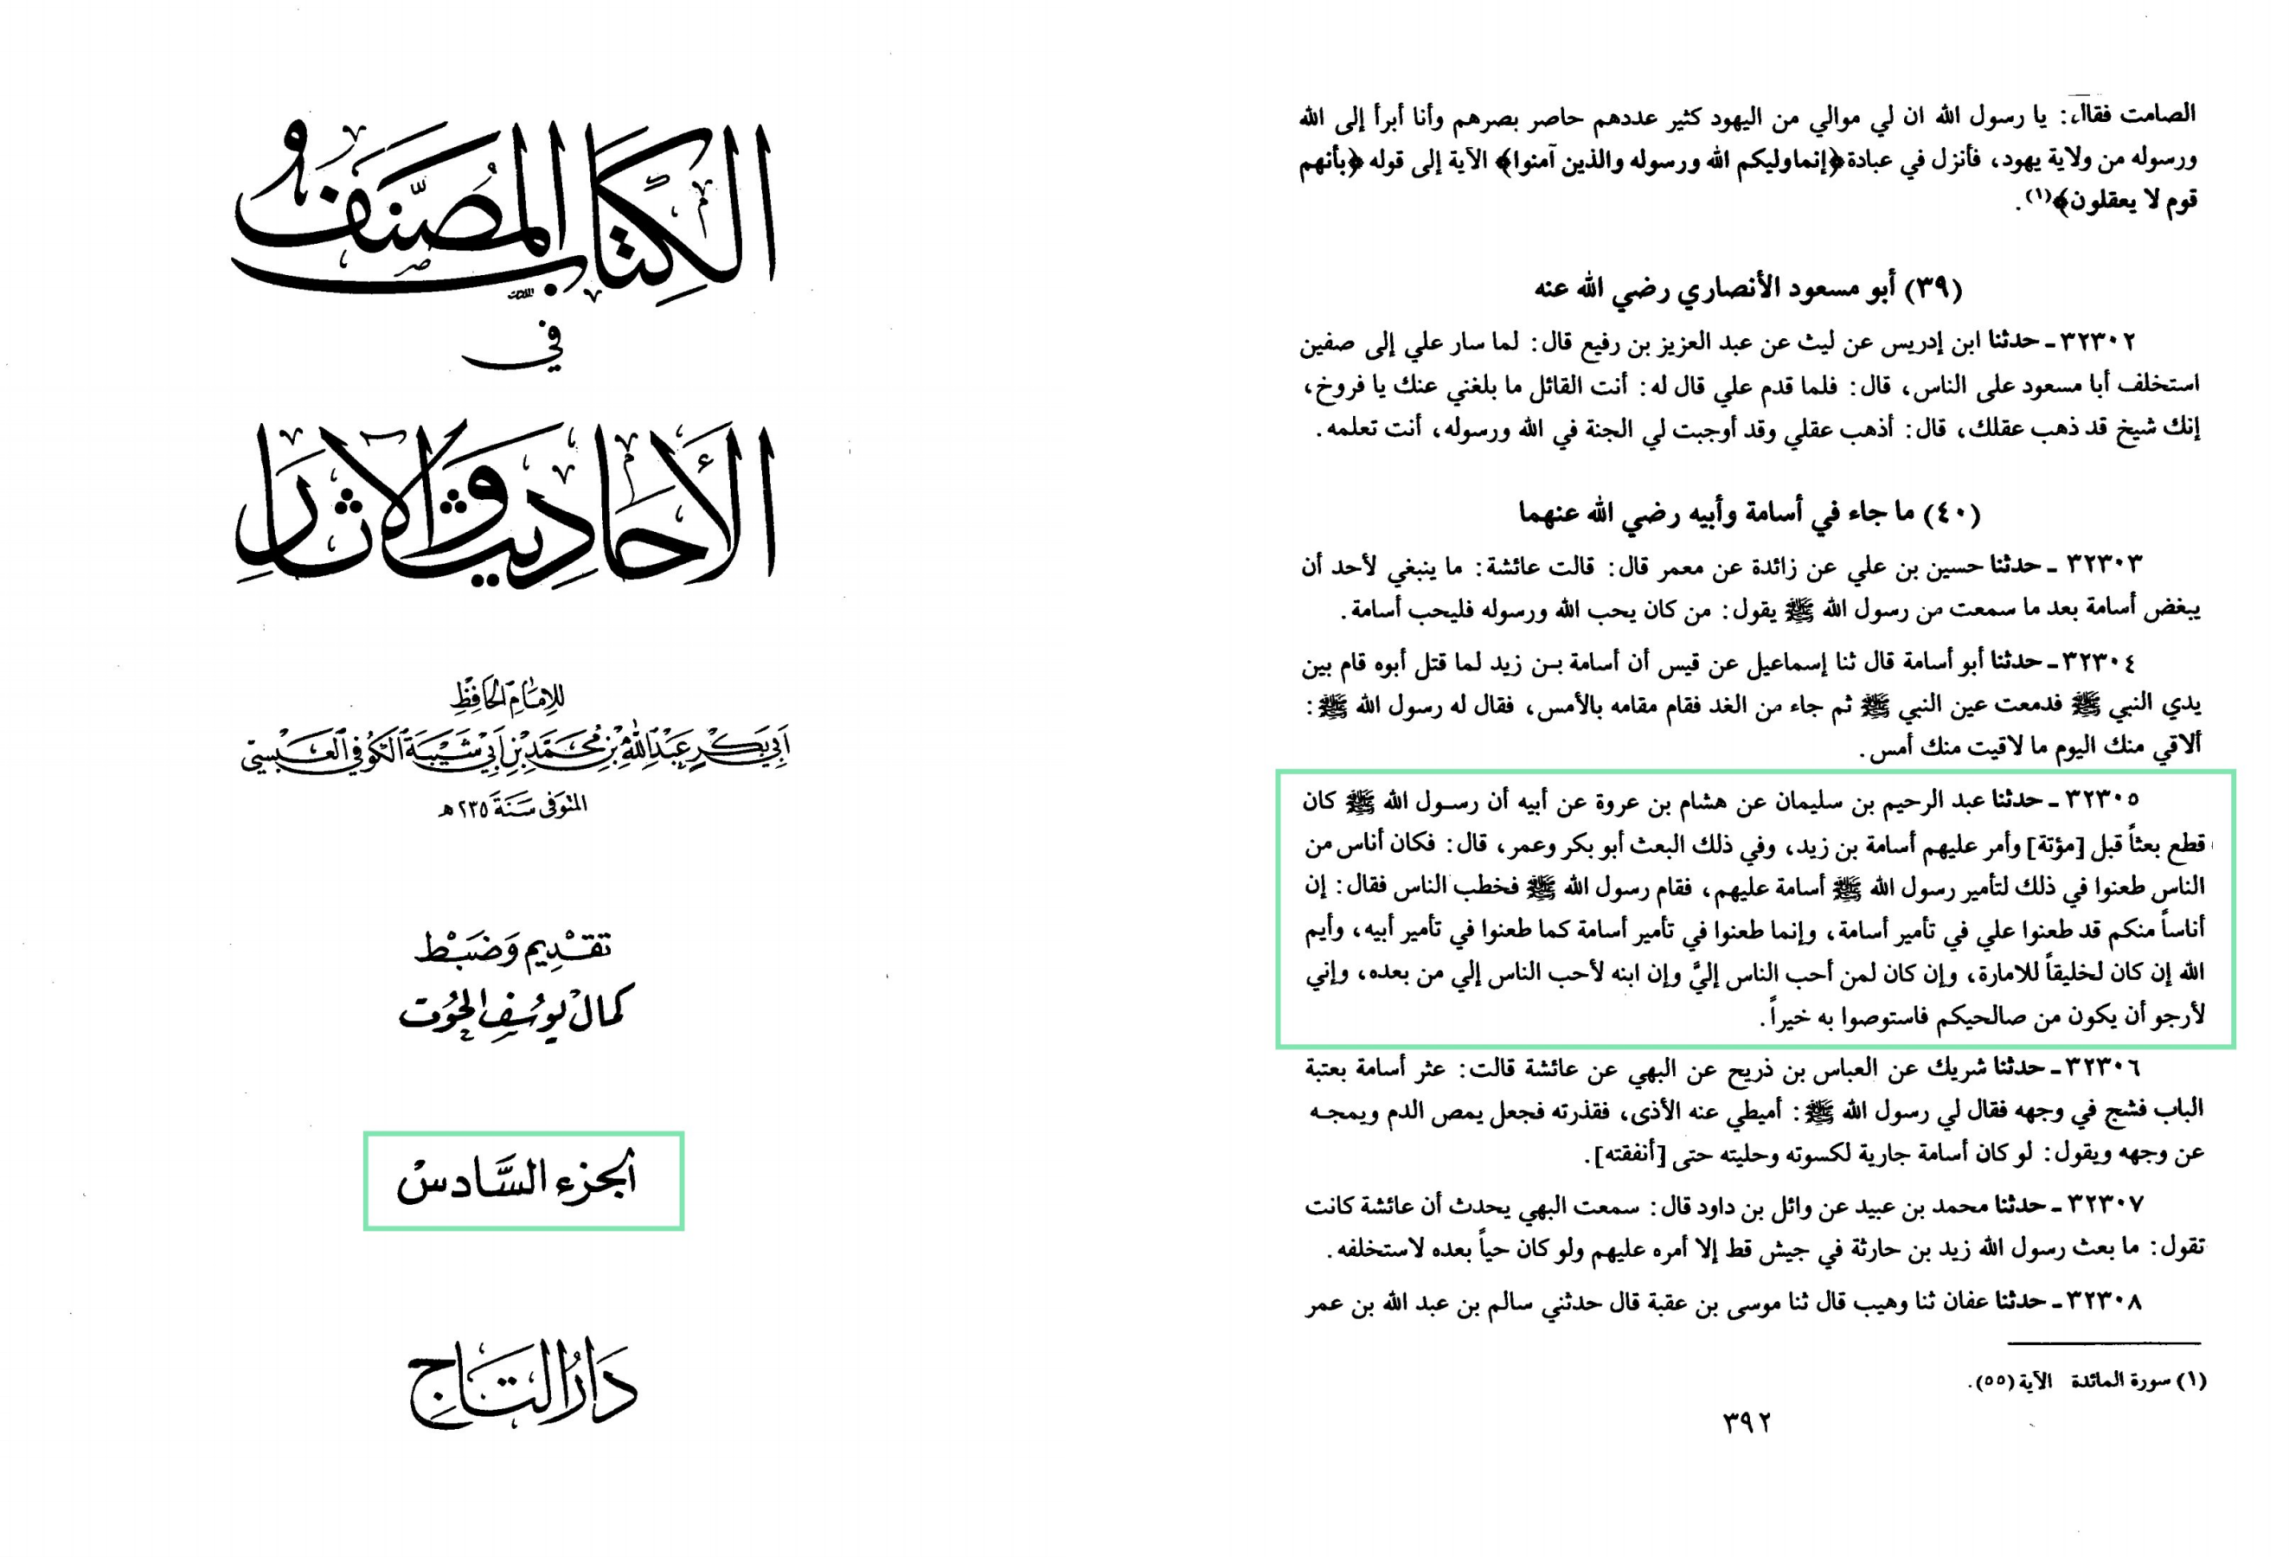 الكتاب المصنف
في
الأحاديث والآثار
للإمام الحافظ
أبي بكر عبد الله بن محمد بن أبي شيبة الكوفي العبسي
المتوفى سنة ٢٣٥ هـ
تقديم وضبط
كمال يوسف الحوت
الجزء السادس
دار التاج
الصامت فقال: يا رسول الله ان لي موالي من اليهود كثير عددهم حاصر بصرهم وأنا أبرأ إلى الله
ورسوله من ولاية يهود، فأنزل في عبادة ﴿إنماوليكم الله ورسوله والذين آمنوا﴾ الآية إلى قوله ﴿بأنهم
قوم لا يعقلون﴾(١).
(٣٩) أبو مسعود الأنصاري رضي الله عنه
٣٢٣٠٢ ـ حدثنا ابن إدريس عن ليث عن عبد العزيز بن رفيع قال: لما سار علي إلى صفين
استخلف أبا مسعود على الناس، قال: فلما قدم علي قال له: أنت القائل ما بلغني عنك يا فروخ،
إنك شيخ قد ذهب عقلك، قال: أذهب عقلي وقد أوجبت لي الجنة في الله ورسوله، أنت تعلمه.
(٤٠) ما جاء في أسامة وأبيه رضي الله عنهما
٣٢٣٠٣ ـ حدثنا حسين بن علي عن زائدة عن معمر قال: قالت عائشة: ما ينبغي لأحد أن
يبغض أسامة بعد ما سمعت من رسول الله ﷺ يقول: من كان يحب الله ورسوله فليحب أسامة.
٣٢٣٠٤ ـ حدثنا أبو أسامة قال ثنا إسماعيل عن قيس أن أسامة بن زيد لما قتل أبوه قام بين
يدي النبي ﷺ فدمعت عين النبي ﷺ ثم جاء من الغد فقام مقامه بالأمس، فقال له رسول الله ﷺ:
ألاقي منك اليوم ما لاقيت منك أمس.
٣٢٣٠٥ ـ حدثنا عبد الرحيم بن سليمان عن هشام بن عروة عن أبيه أن رسول الله ﷺ كان
قطع بعثاً قبل [مؤتة] وأمر عليهم أسامة بن زيد، وفي ذلك البعث أبو بكر وعمر، قال: فكان أناس من
الناس طعنوا في ذلك لتأمير رسول الله ﷺ أسامة عليهم، فقام رسول الله ﷺ فخطب الناس فقال: إن
أناساً منكم قد طعنوا علي في تأمير أسامة، وإنما طعنوا في تأمير أسامة كما طعنوا في تأمير أبيه، وأيم
الله إن كان لخليقاً للامارة، وإن كان لمن أحب الناس إليَّ وإن ابنه لأحب الناس إلي من بعده، وإني
لأرجو أن يكون من صالحيكم فاستوصوا به خيراً.
٣٢٣٠٦ ـ حدثنا شريك عن العباس بن ذريح عن البهي عن عائشة قالت: عثر أسامة بعتبة
الباب فشج في وجهه فقال لي رسول الله ﷺ: أميطي عنه الأذى، فقذرته فجعل يمص الدم ويمجه
عن وجهه ويقول: لو كان أسامة جارية لكسوته وحليته حتى [أنفقته].
٣٢٣٠٧ ـ حدثنا محمد بن عبيد عن وائل بن داود قال: سمعت البهي يحدث أن عائشة كانت
تقول: ما بعث رسول الله زيد بن حارثة في جيش قط إلا أمره عليهم ولو كان حياً بعده لاستخلفه.
٣٢٣٠٨ ـ حدثنا عفان ثنا وهيب قال ثنا موسى بن عقبة قال حدثني سالم بن عبد الله بن عمر
(١) سورة المائدة الآية (٥٥).
٣٩٢